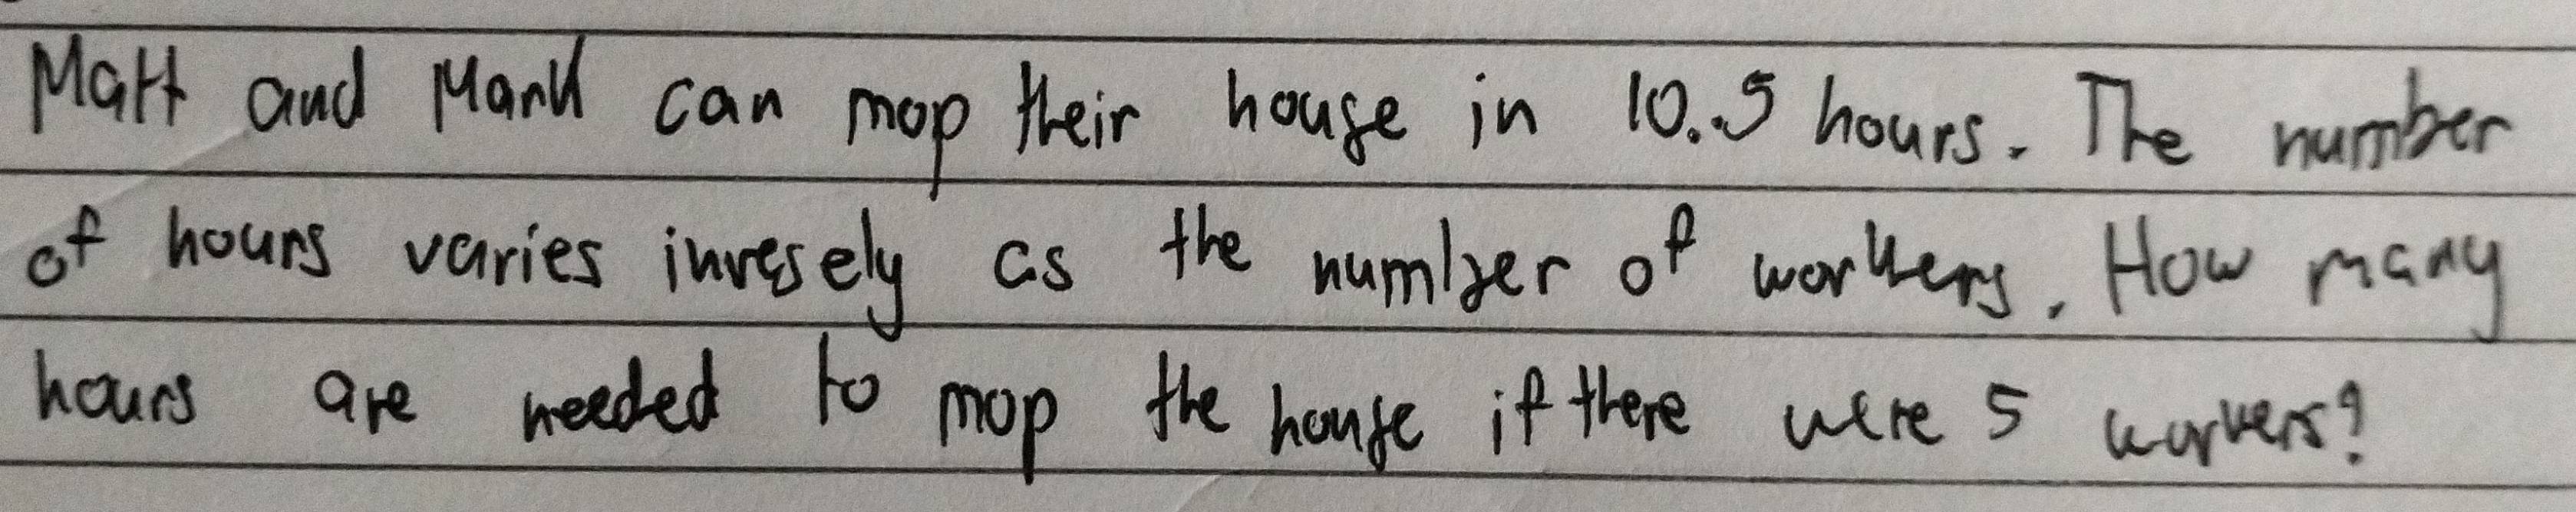 Matt and Mark can mop their house in 10.5 hours. The number
of hours varies invesely as the number of workers. How many
hours are needed to mop the house if there were 5 workers?